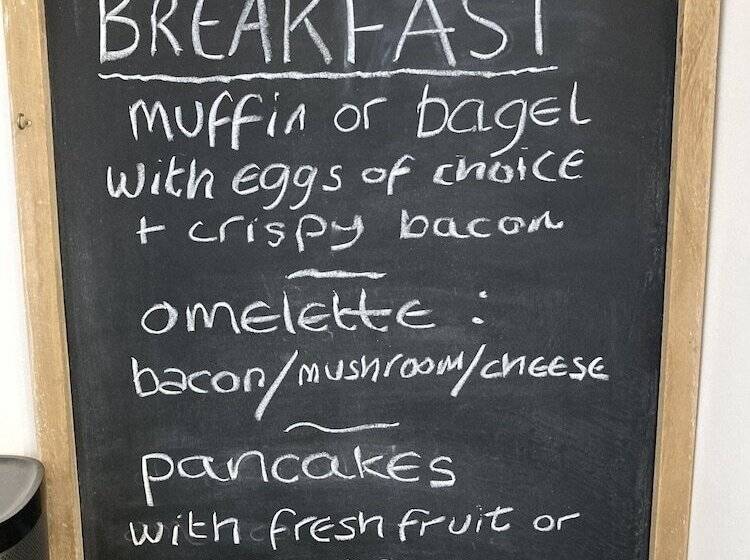 BREAKFAST
muffin or bagel
with eggs of choice
+ crispy bacon
omelette :
bacon/mushroom/cheese
pancakes
with fresh fruit or